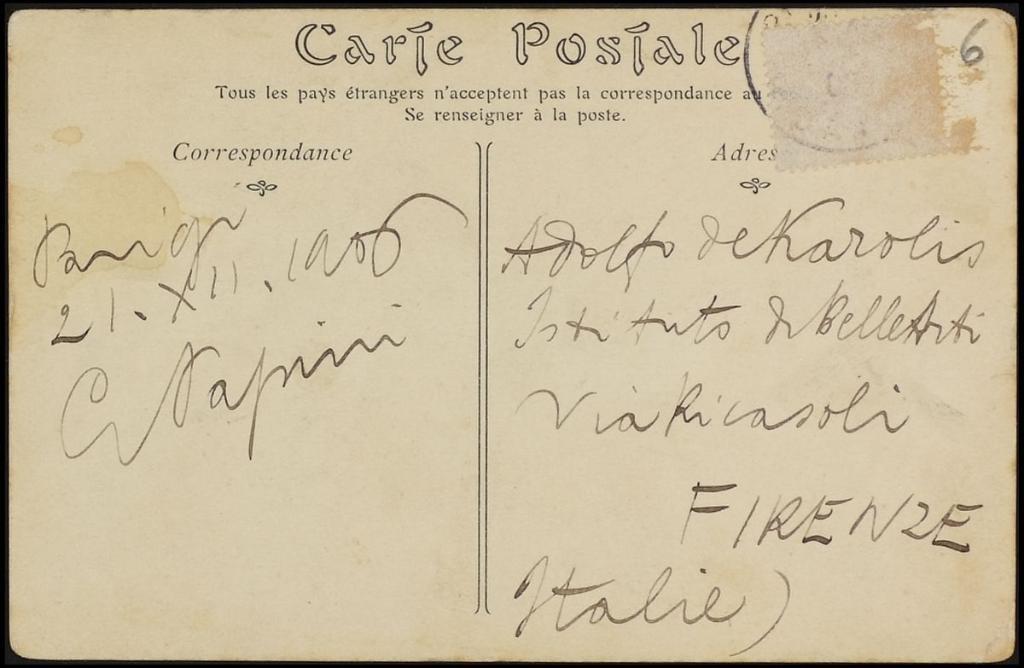 Carte Postale
6
Tous les pays étrangers n'acceptent pas la correspondance au
Se renseigner à la poste.
Correspondance
Parigi
21. XII. 1906
G Papini
Adres
Adolfo de Karolis
Istituto di Belle Arti
Via Ricasoli
FIRENZE
Italie)